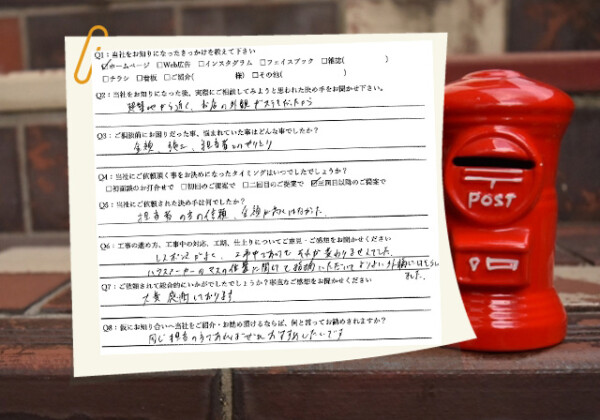 Q1：当社をお知りになったきっかけを教えて下さい
☑ホームページ □Web広告 □インスタグラム □フェイスブック □雑誌( )
□チラシ □看板 □ご紹介( 様) □その他( )
Q2：当社をお知りになった後、実際にご相談してみようと思われた決め手をお聞かせ下さい。
現場から近く、お店の外観が
Q3：ご相談前にお困りだった事、悩まれていた事はどんな事でしたか？
金額、施工、担当者とのやりとり
Q4：当社にご依頼頂く事をお決めになったタイミングはいつでしたでしょうか？
□初面談のお打合せで □初回のご提案で □二回目のご提案で ☑三回目以降のご提案で
Q5：当社にご依頼された決め手は何でしたか？
担当者の方の信頼、金額が
Q6：工事の進め方、工事中の対応、工期、仕上りについてご意見・ご感想をお聞かせください
レスポンスがよく、工事中であっても
ハウスメーカーのミスの位置に関しても指摘いただいて
ました。
Q7：ご依頼されて総合的にいかがでしたでしょうか？率直なご感想をお聞かせください
大変感謝しております
Q8：仮にお知り合いへ当社をご紹介・お勧め頂けるならば、何と言ってお勧めされますか？
同じ担当の
POST